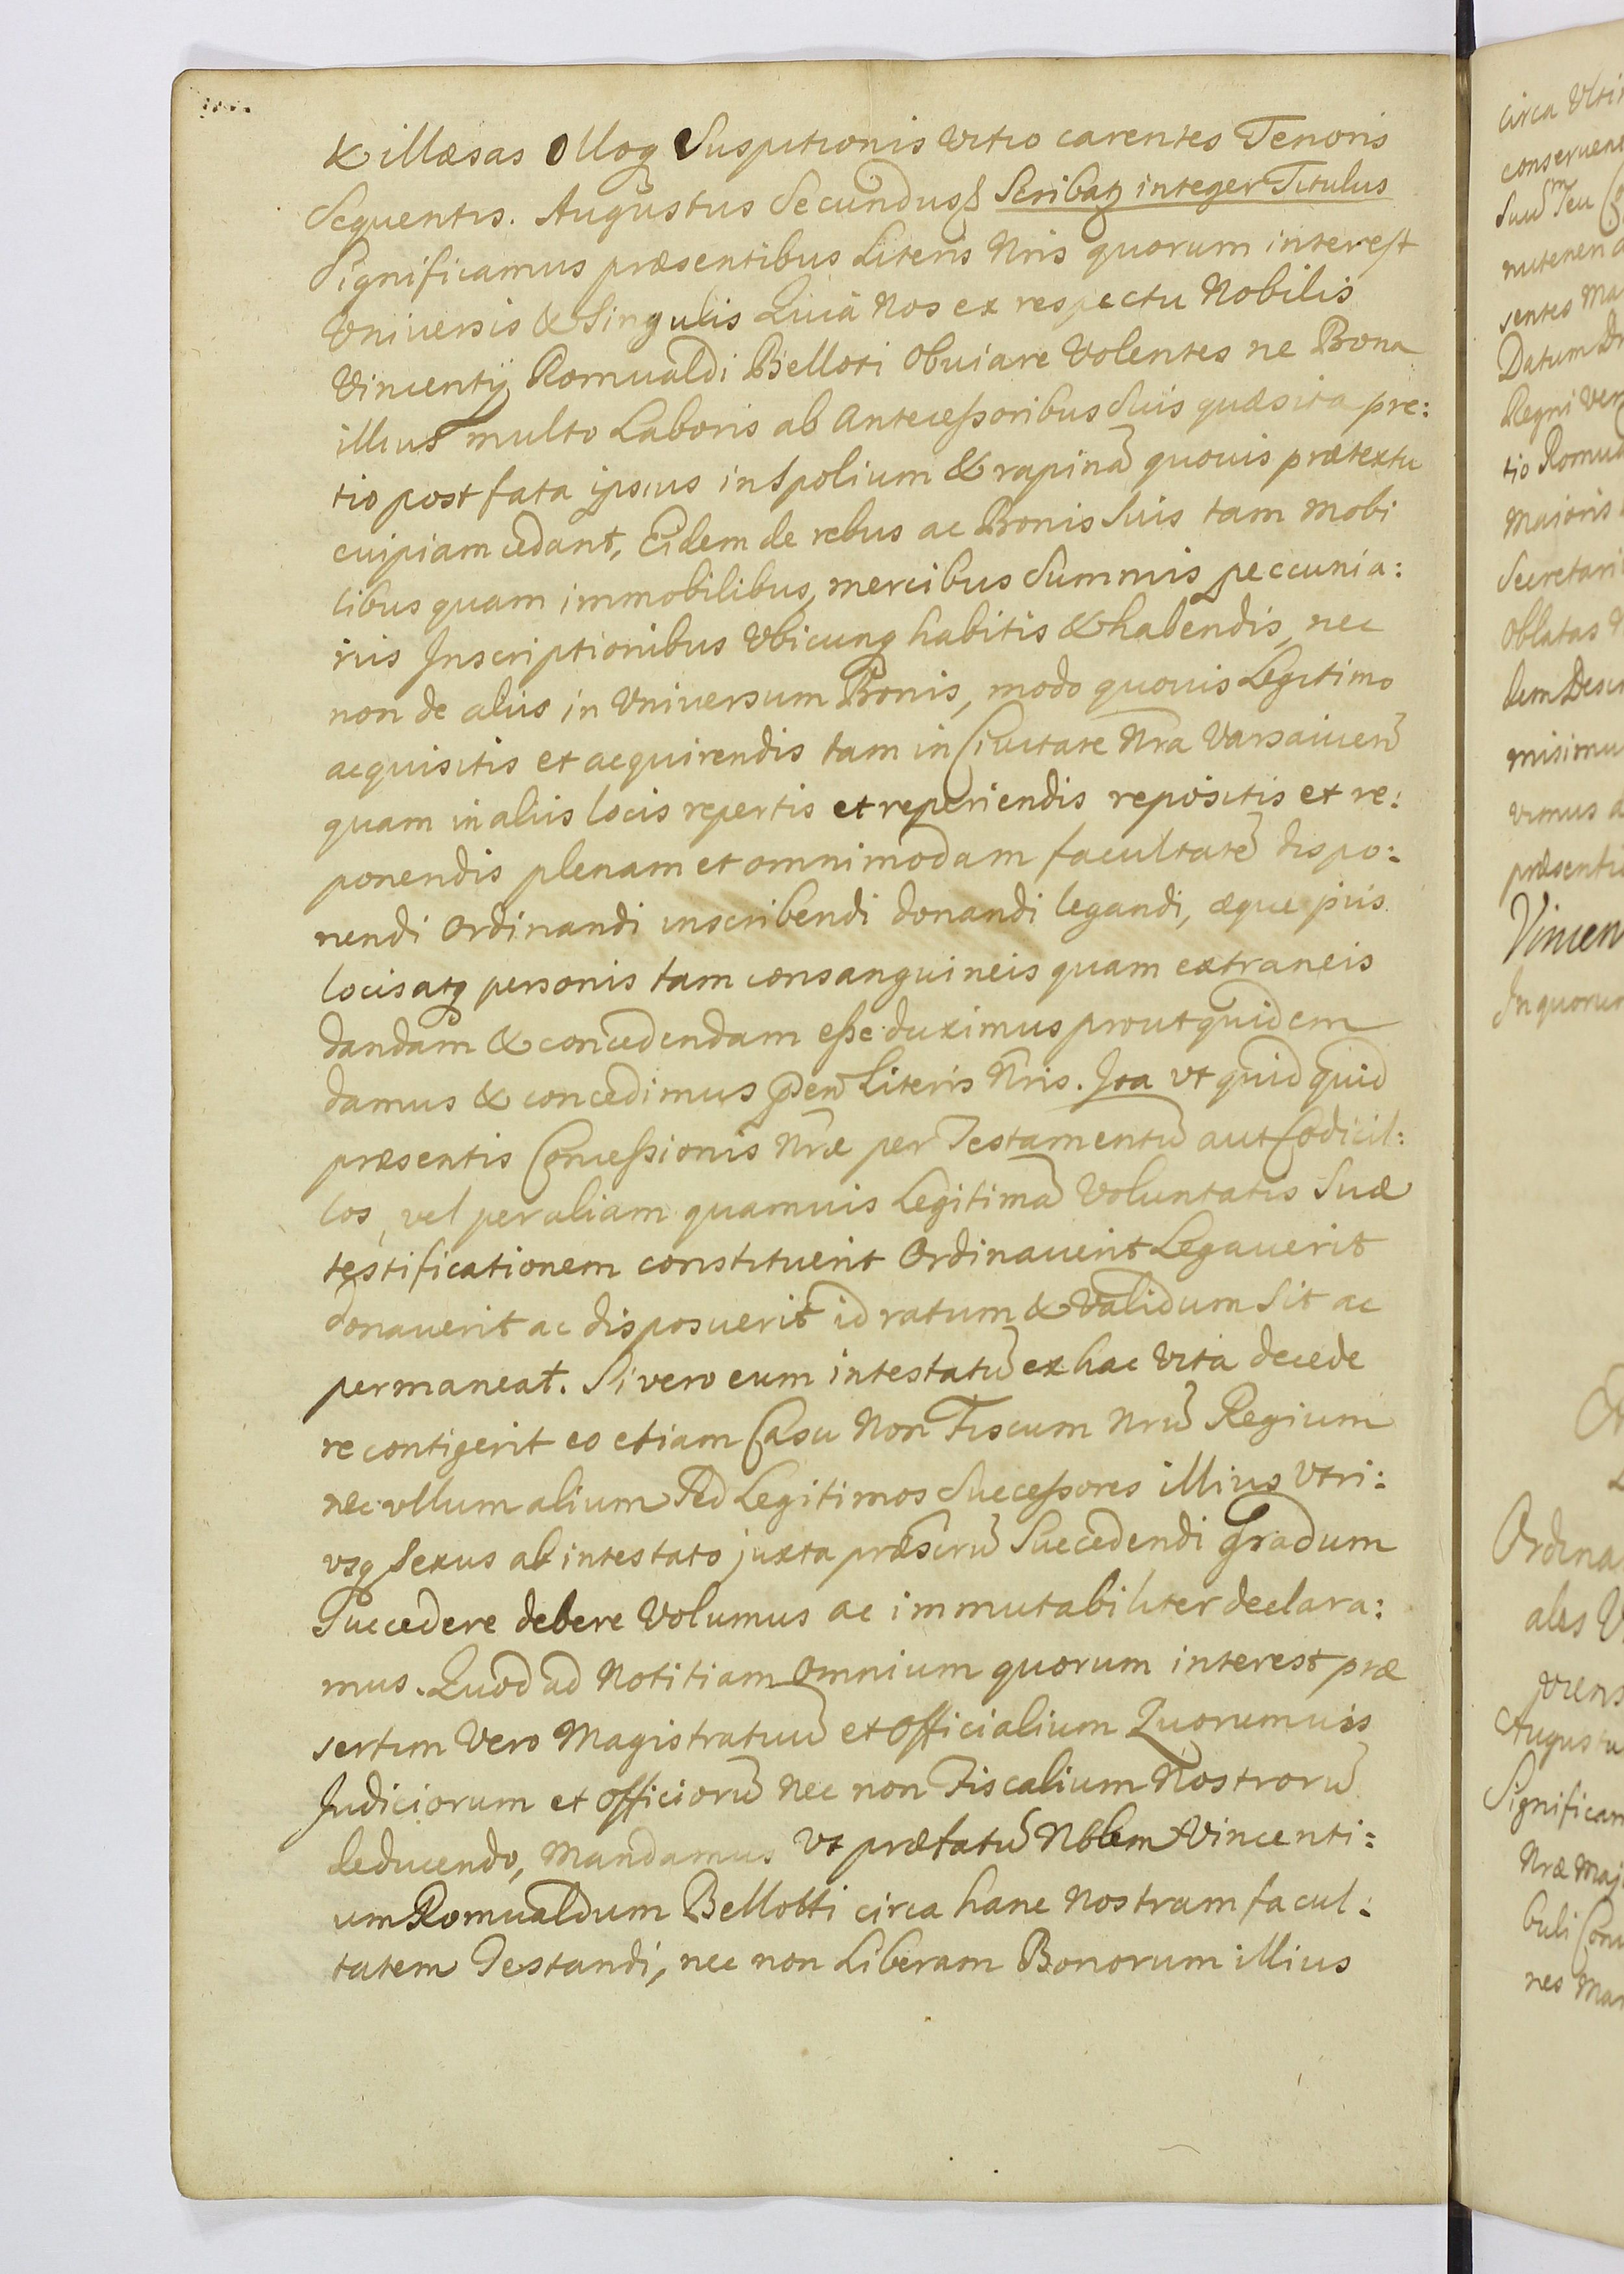 & illæsas Olloq Suspitionis Vitio carentes Tenoris
Sequentis. Augustus Secundus Scribaz integer Titulus
Significamus præsentibus Literis Nris quorum interest
Vniversis & Singulis Quia Nos ex respectu Nobilis
Vincentÿ Romualdi Belloti Obuiare Volentes ne Bona
illius multo Laboris ab Antecessoribus Suis quæsita pre:
tio post fata ipsius in Spolium & rapinā quouis prætextu
cuipiam cedant, Eidem de rebus ac Bonis Suis tam Mobi
libus quam immobilibus, mercibus Summis peccunia:
riis Inscriptionibus Vbicunq habitis & habendis, nec
non de aliis in Vniversum Bonis, modo quouis Legitimo
acquisitis et acquirendis tam in Ciuitate Nra Varsauien
quam in aliis locis repertis et reperiendis repositis et re:
ponendis plenam et omnimodam facultatē dispo:
nendi Ordinandi inscribendi donandi legandi, æque piis
locis atq personis tam consanguineis quam extraneis
dandam & concedendam esse duximus prout quidem
damus & concedimus pñsen Literis Nris. Ita vt quid quid
præsentis Concessionis Nræ per Testamentū aut Codicil:
los, vel per aliam quamuis Legitimā Voluntatis Suæ
testificationem constituerit Ordinauerit Legauerit
donauerit ac disposuerit id ratum & Validum Sit ac
permaneat. Si vero eum intestatū ex hac Vita decede
re contigerit eo etiam Casu Non Fiscum Nrū Regium
nec vllum alium Sed Legitimos Successores illius Vtri:
vsq Sexus ab intestato juxta præscrū Succedendi Gradum
Succedere debere Volumus ac immutabiliter declara:
mus. Quod ad Notitiam Omnium quorum interest præ
sertim Vero Magistratuū et Officialium Quorumuis
Judiciorum et Officiorū Nec non Fiscalium Nostrorū
deducendo, Mandamus Vt præfatū Nblem Vincenti:
um Romualdum Bellotti circa hanc Nostram facul:
tatem Testandi, nec non Liberam Bonorum illius
circa Vlti
Datum
Regni
tio Romu
Maioris
Secretari
Oblatas
misimu
vimus
præsenti
Vincen
In quorum
Ordina
ales V
Augustu
Significam
Nræ Maj
buli Con
nes Man